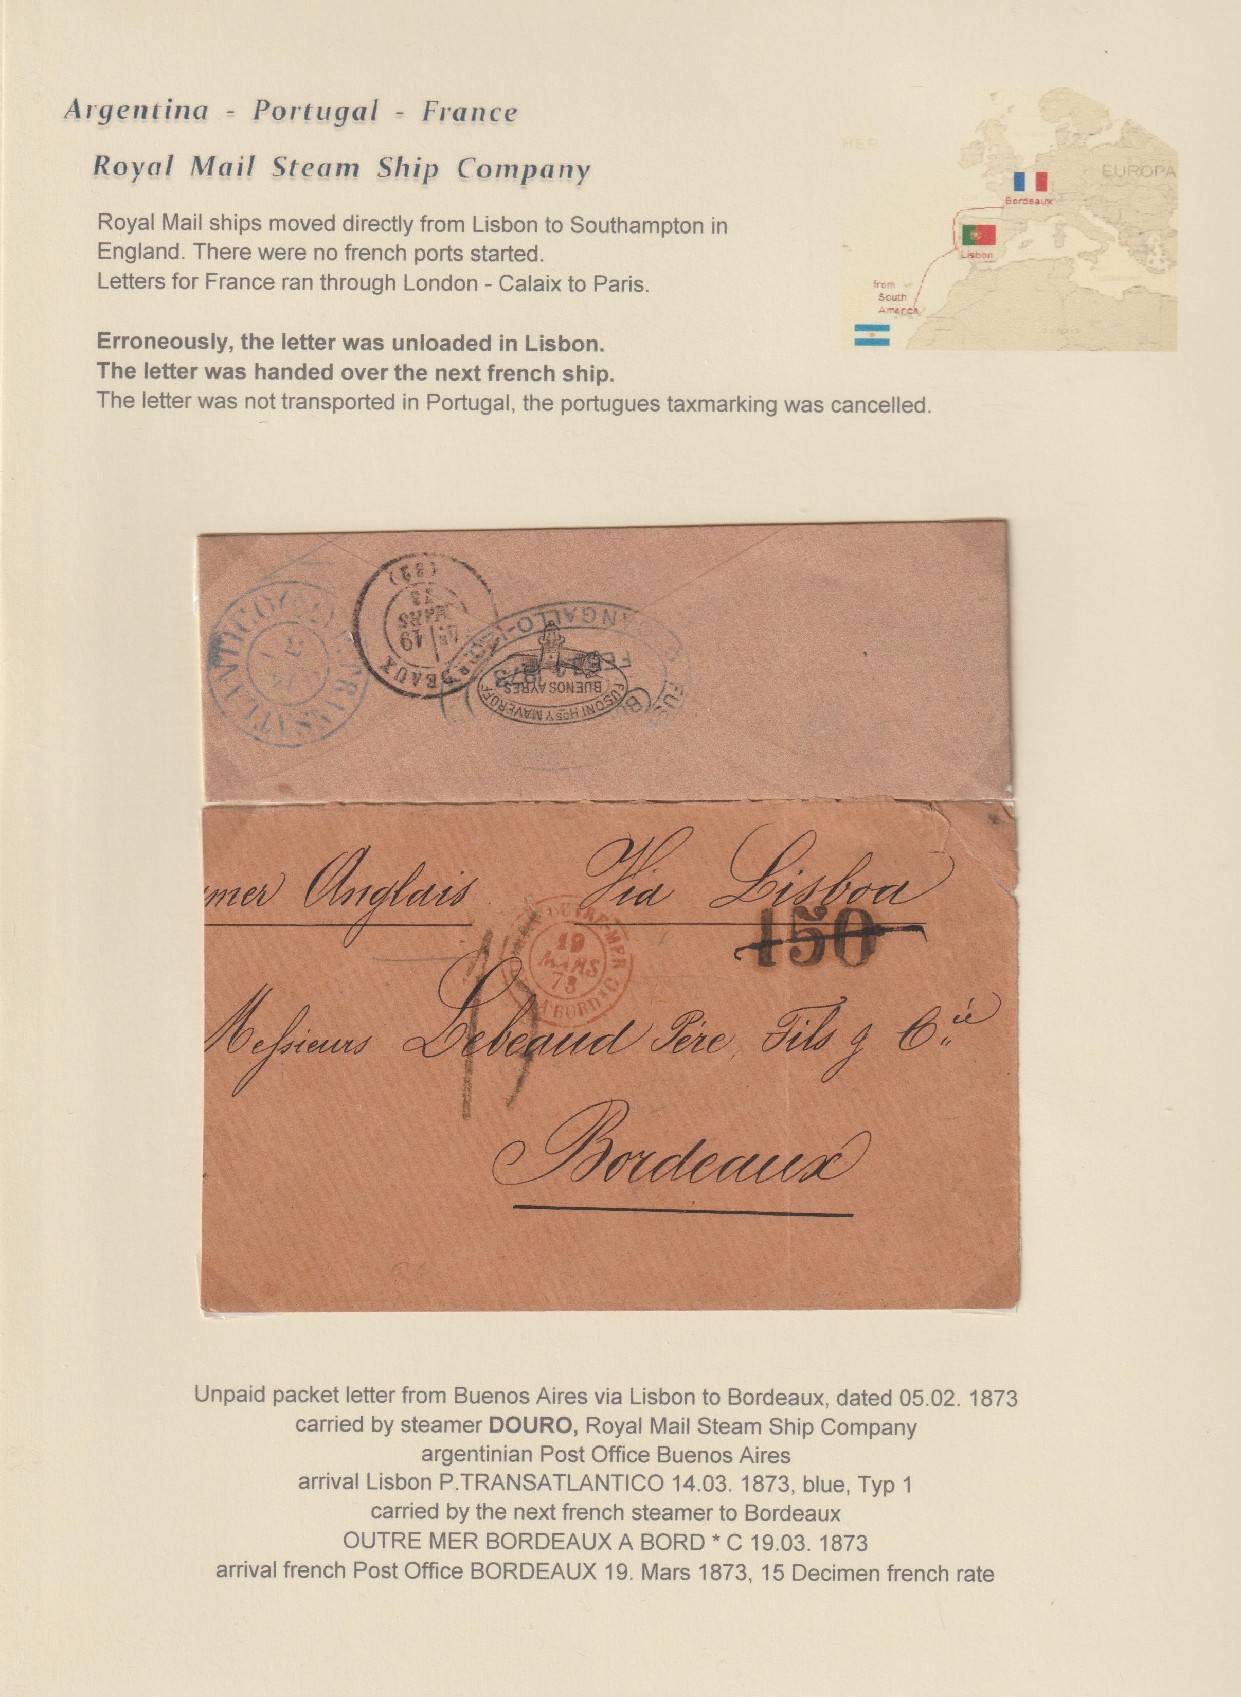 Argentina - Portugal - France
Royal Mail Steam Ship Company
Royal Mail ships moved directly from Lisbon to Southampton in
England. There were no french ports started.
Letters for France ran through London - Calaix to Paris.
Erroneously, the letter was unloaded in Lisbon.
The letter was handed over the next french ship.
The letter was not transported in Portugal, the portugues taxmarking was cancelled.
HER
EUROPA
Bordeaux
Lisbon
from
South
America
P. TRANSATLANTICO
BORDEAUX
19
MARS
73
(32)
BUENOS AYRES
FUSONI HOS Y MAVEROFF
mer Anglais Via Lisboa
150
OUTRE-MER
19
MARS
73
15
Messieurs Lebeaud Père, Fils & Cie
Bordeaux
Unpaid packet letter from Buenos Aires via Lisbon to Bordeaux, dated 05.02. 1873
carried by steamer DOURO, Royal Mail Steam Ship Company
argentinian Post Office Buenos Aires
arrival Lisbon P.TRANSATLANTICO 14.03. 1873, blue, Typ 1
carried by the next french steamer to Bordeaux
OUTRE MER BORDEAUX A BORD * C 19.03. 1873
arrival french Post Office BORDEAUX 19. Mars 1873, 15 Decimen french rate